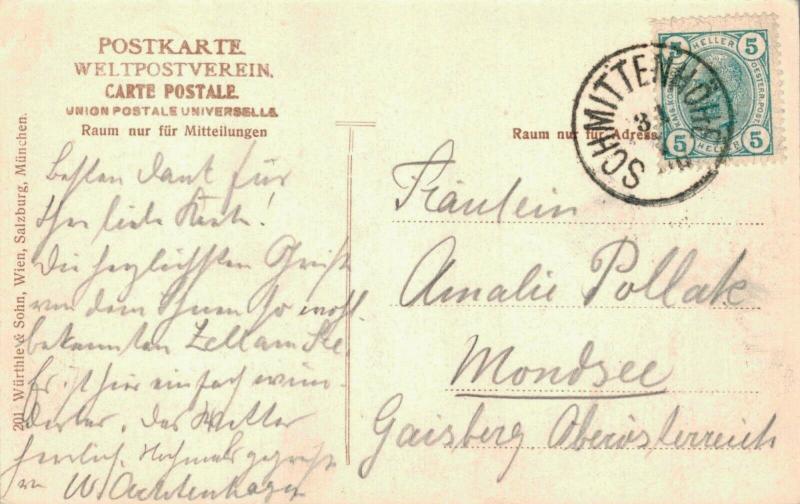 POSTKARTE.
WELTPOSTVEREIN.
CARTE POSTALE.
UNION POSTALE UNIVERSELLE.
Raum nur für Mitteilungen
Raum nur für Adresse
SCHMITTENHÖHE
5 HELLER 5
KAIS. KÖN. OESTERR. POST
5 HELLER 5
201 Würthle & Sohn, Wien, Salzburg, München.
besten Dank für
Ihre liebe Karte!
Die herzlichsten Grüße
von dem Ihnen so wohl
bekannten Zell am See.
Es ist hier einfach wun-
derbar, das Wetter
herrlich. Nochmals gegrüßt
von
Fräulein
Amalie Pollak
Mondsee
Gaisberg Oberösterreich